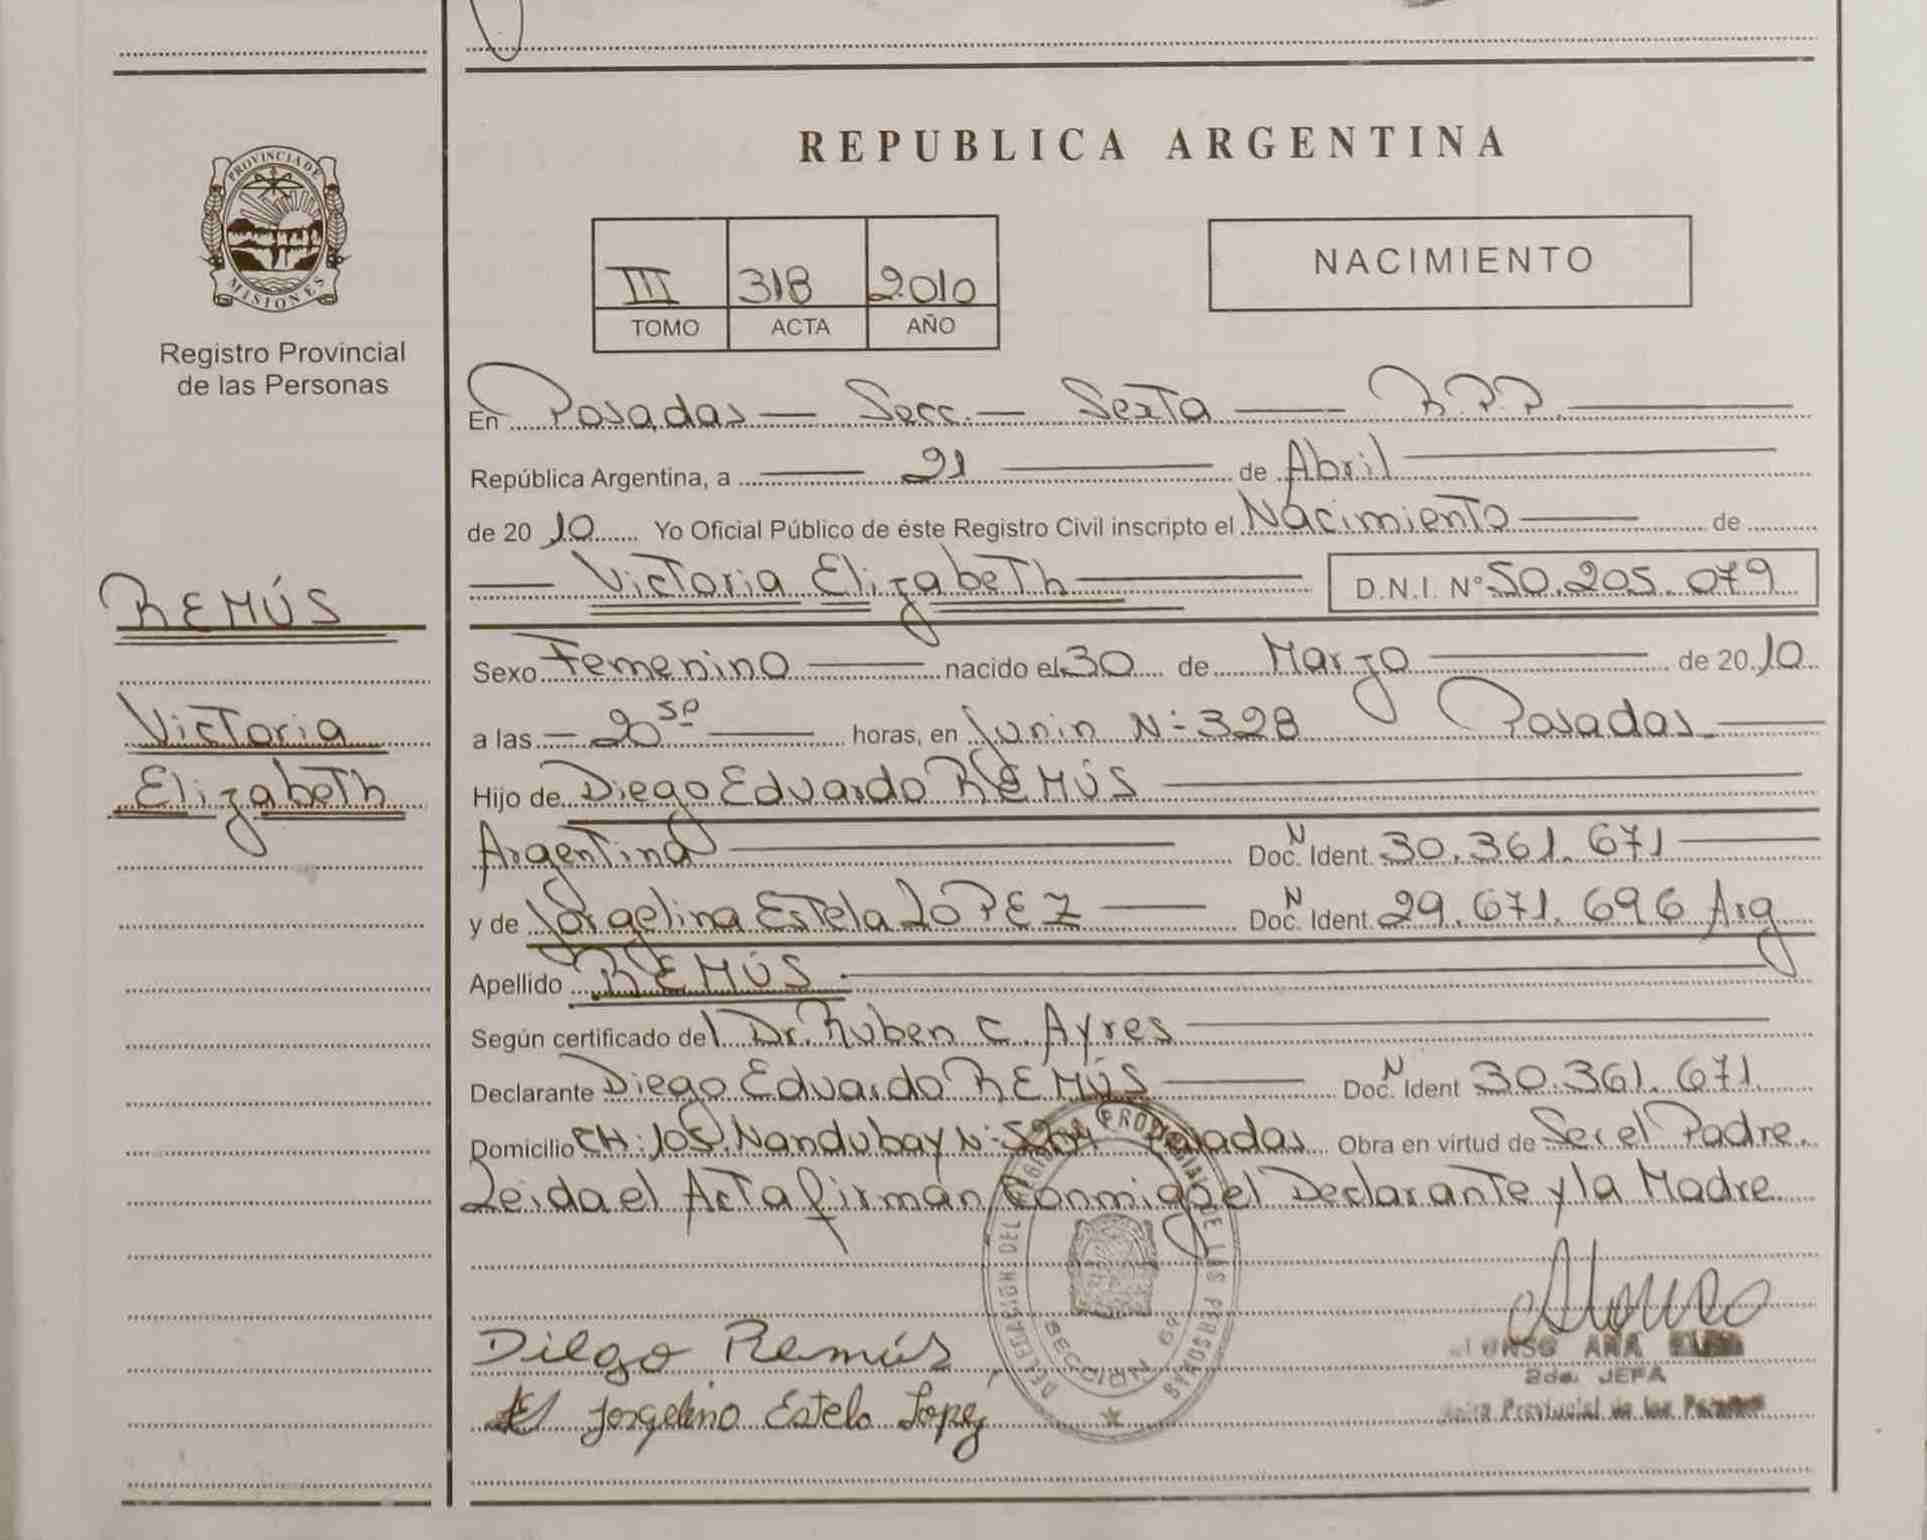 PROVINCIA DE
MISIONES
Registro Provincial
de las Personas
REMÚS
Victoria
Elizabeth
REPUBLICA ARGENTINA
III 318 2010
TOMO ACTA AÑO
NACIMIENTO
En Posadas — Secc. — Sexta — R.P.P.
República Argentina, a — 21 — de Abril
de 20 10 Yo Oficial Público de éste Registro Civil inscripto el Nacimiento — de
— Victoria Elizabeth — D.N.I. Nº 50.205.079
Sexo Femenino — nacido el 30 de Marzo — de 20 10
a las — 20 50 — horas, en Junin Nº 328 Posadas —
Hijo de Diego Eduardo REMÚS —
Argentina — Doc. N Ident. 30.361.671 —
y de Jorgelina Estela LOPEZ — Doc. N Ident. 29.671.696 Arg
Apellido REMÚS —
Según certificado del Dr. Ruben C. Ayres —
Declarante Diego Eduardo REMÚS — Doc. N Ident 30.361.671
Domicilio CH: 105. Nandubay Nº Posadas Obra en virtud de Ser el Padre.
Leida el Acta firman Conmigo el Declarante y la Madre
DELEGACION DEL REGISTRO PROVINCIAL DE LAS PERSONAS
SECCION 6ª
Diego Remús
Jorgelina Estela Lopez
ANA
2da. JEFA
Provincial de las